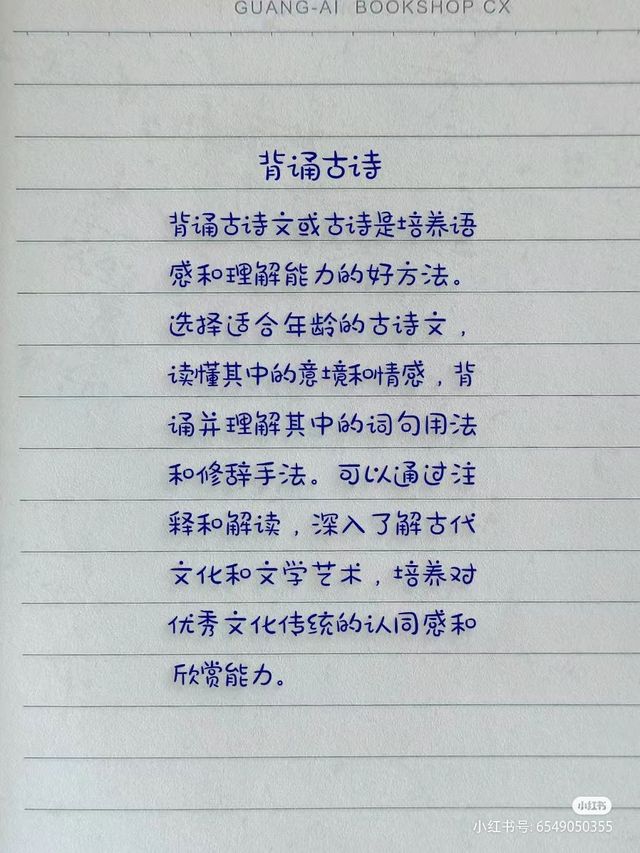 GUANG-AI BOOKSHOP CX
背诵古诗
背诵古诗文或古诗是培养语
感和理解能力的好方法。
选择适合年龄的古诗文，
读懂其中的意境和情感，背
诵并理解其中的词句用法
和修辞手法。可以通过注
释和解读，深入了解古代
文化和文学艺术，培养对
优秀文化传统的认同感和
欣赏能力。
小红书
小红书号: 6549050355